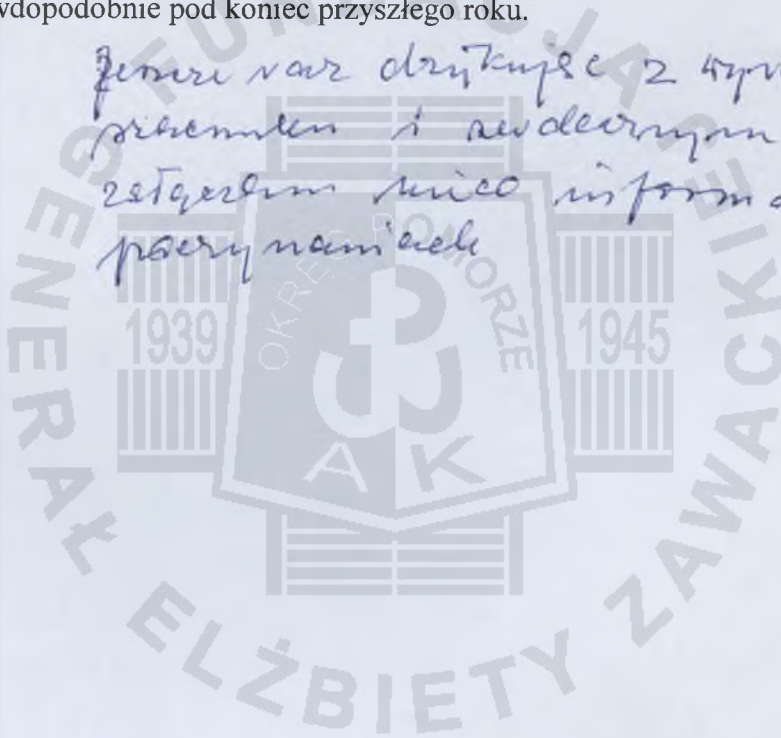 wdopodobnie pod koniec przyszłego roku.
Jeszcze raz dziękując z wyr
szacunku i serdecznym
załączam nieco informa
poczynaniach
FUNDACJA GENERAŁ ELŻBIETY ZAWACKIEJ
OKRĘG POMORZE
1939 1945
AK